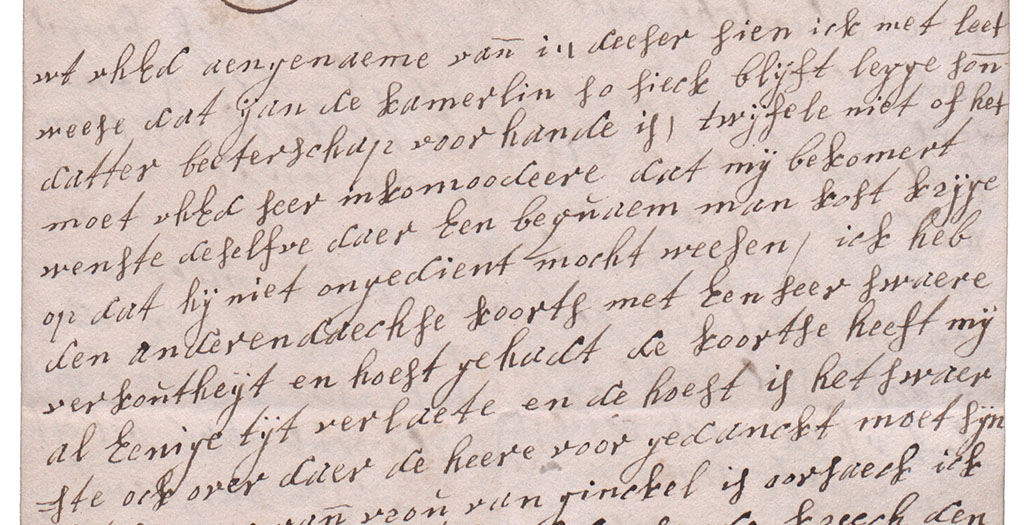 wt uhEd aengenaeme vañ 1n deeser sien ick met leet
weese dat ijan de kamerlin so sieck blijft legge soñ
datter beeterschap voor hande is, twijfele niet of het
moet uhEd seer inkomoodeere dat mij bekomert
wenste deselfve daer Een bequaem man kost krijge
op dat hij niet ongedient mocht weesen, ick heb
den anderendaeckhse koorts met Een seer swaere
verkoutheijt en hoest gehadt de koortse heeft mij
al Eenige tijt verlaete en de hoest is het swaer
=ste ock over daer de heere voor gedanckt moet sijn
vañ vrou van ginckel is oorsaeck ick
kreech den